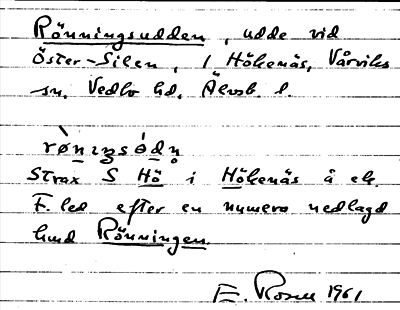 Rönningsudden, udde vid
Öster-Silen, i Hökenäs, Vårviks
sn. Vedbo hd, Älvsb. l.
rø̀nıŋsódn̥
Strax S Hö i Hökenäs å ek.
F. led efter en numera nedlagd
lund Rönningen.
E. Rosell 1961